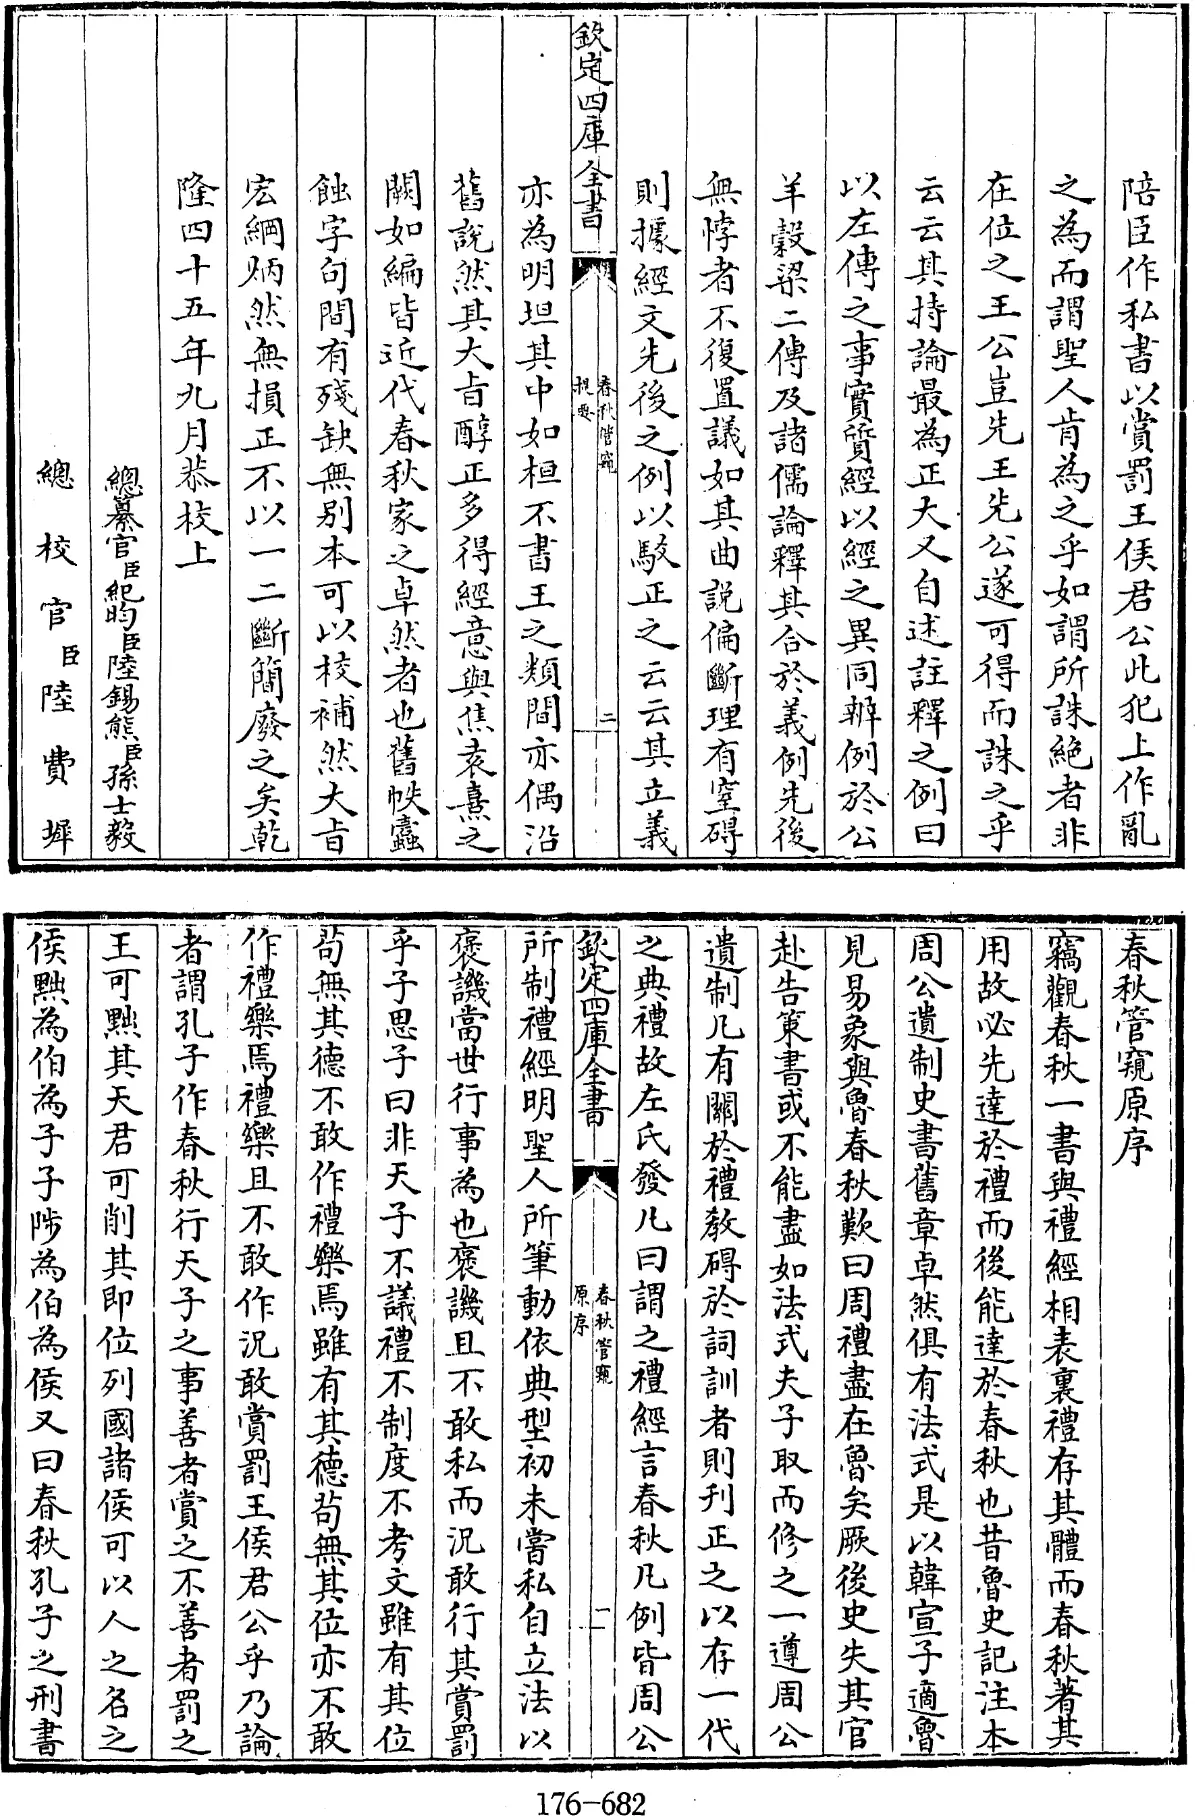 陪臣作私書以賞罰王侯君公此犯上作亂
之為而謂聖人肯為之乎如謂所誅絶者非
在位之王公豈先王先公遂可得而誅之乎
云云其持論最為正大又自述註釋之例曰
以左傳之事實質經以經之異同辨例於公
羊穀梁二傳及諸儒論釋其合於義例先後
無悖者不復置議如其曲說偏斷理有窒碍
則據經文先後之例以駁正之云云其立義
欽定四庫全書
春秋管窺
提要
二
亦為明坦其中如桓不書王之類間亦偶沿
舊說然其大旨醇正多得經意與焦袁熹之
闕如編皆近代春秋家之卓然者也舊帙蠹
蝕字句間有殘缺無別本可以校補然大旨
宏綱炳然無損正不以一二斷簡廢之矣乾
隆四十五年九月恭校上
總纂官臣紀昀臣陸錫熊臣孫士毅
總校官臣陸費墀
春秋管窺原序
竊觀春秋一書與禮經相表裏禮存其體而春秋著其
用故必先達於禮而後能達於春秋也昔魯史記注本
周公遺制史書舊章卓然俱有法式是以韓宣子適魯
見易象與魯春秋歎曰周禮盡在魯矣厥後史失其官
赴告策書或不能盡如法式夫子取而修之一遵周公
遺制凡有關於禮教碍於詞訓者則刋正之以存一代
之典禮故左氏發凡曰謂之禮經言春秋凡例皆周公
欽定四庫全書
春秋管窺
原序
一
所制禮經明聖人所筆動依典型初未嘗私自立法以
褒譏當世行事為也褒譏且不敢私而況敢行其賞罰
乎子思子曰非天子不議禮不制度不考文雖有其位
苟無其德不敢作禮樂焉雖有其德苟無其位亦不敢
作禮樂焉禮樂且不敢作況敢賞罰王侯君公乎乃論
者謂孔子作春秋行天子之事善者賞之不善者罰之
王可黜其天君可削其即位列國諸侯可以人之名之
侯黜為伯為子子陟為伯為侯又曰春秋孔子之刑書
176-682